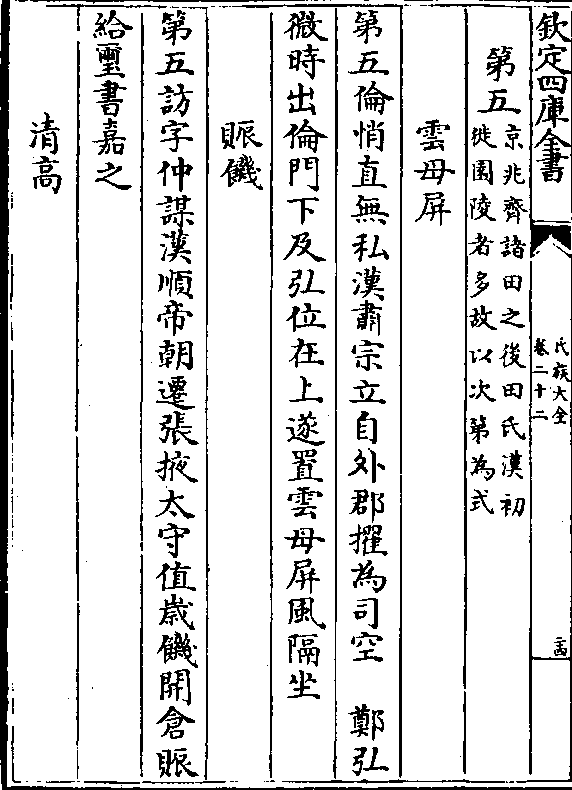 欽定四庫全書
氏族大全
卷二十二
二十四
第五
京兆齊諸田之後田氏漢初
徙園陵者多故以次第為氏
雲母屏
第五倫悄直無私漢肅宗立自外郡擢為司空　鄭弘
微時出倫門下及弘位在上遂置雲母屏風隔坐
賑饑
第五訪字仲謀漢順帝朝遷張掖太守值歲饑開倉賑
給璽書嘉之
清高